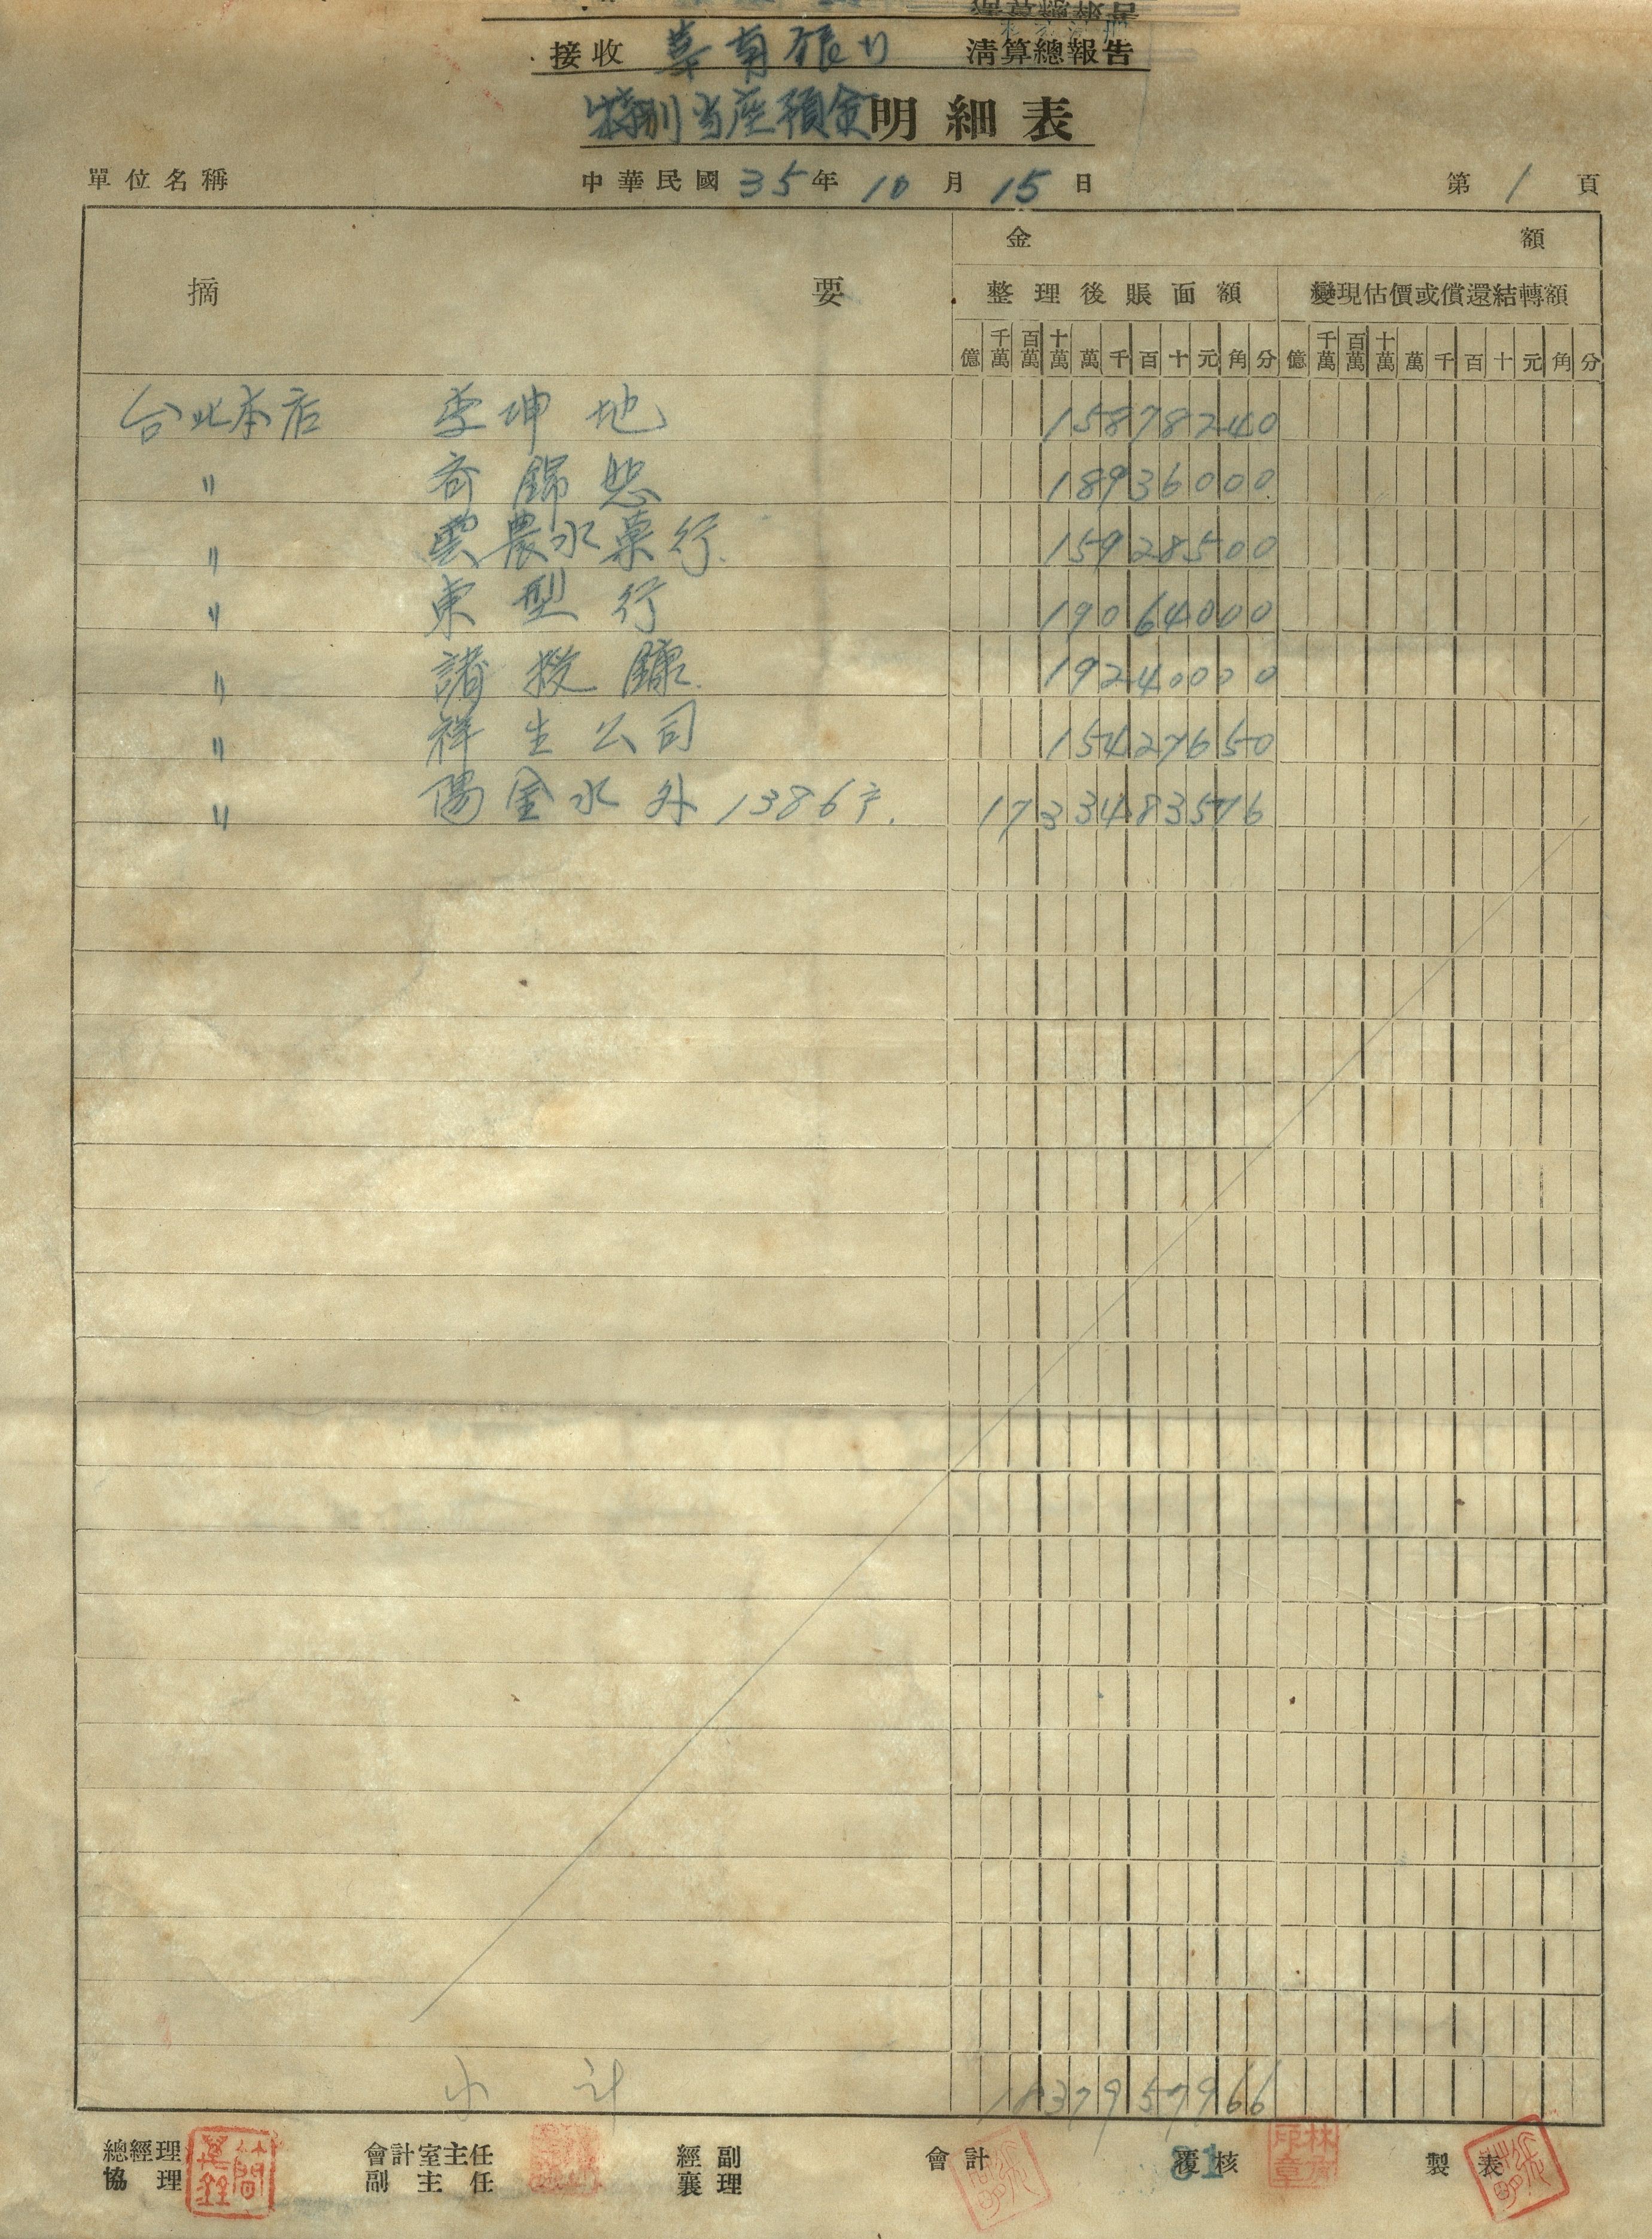 接收 華南銀行 清算總報告
特別当座預金明細表
單位名稱 中華民國 35 年 10 月 15 日 第 1 頁
摘要 金額
整理後賬面額 變現估價或償還結轉額
億 千萬 百萬 十萬 萬 千 百 十 元 角 分 億 千萬 百萬 十萬 萬 千 百 十 元 角 分
台北本店 李坤地 15878240
〃 錦 18936000
〃 農水菓行 15928500
〃 東型行 19064000
〃 諸 19240000
〃 祥生公司 15427650
〃 陽金水外1386戶 1733483576
小計 1837957966
總經理 會計室主任 經副 會計 覆核 製表
協理 副主任 襄理
31